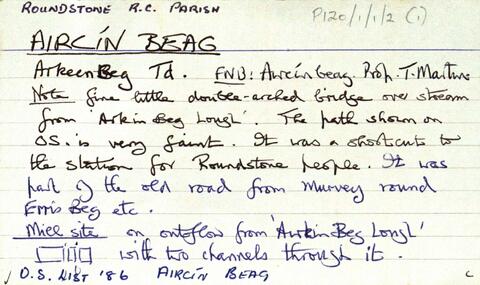 ROUNDSTONE R.C. PARISH
P120/1/1/2 (1)
AIRCÍN BEAG
Arkeen Beg Td. FNB: Aircín beag. Prof. T. Martin
Note fine little double-arched bridge over stream
from 'Arkin Beg Lough'. The path shown on
OS. is very faint. It was a shortcut to
the station for Roundstone people. It was
part of the old road from Murvey round
Erris Beg etc.
Mill site on outflow from 'Arkin Beg Lough'
with two channels through it.
O.S. LIST '86 AIRCÍN BEAG